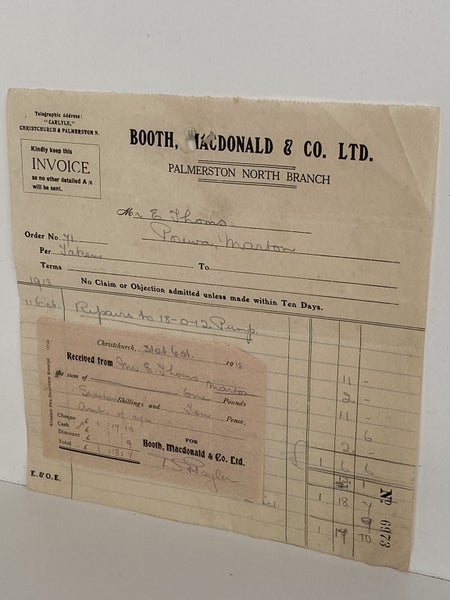 Telegraphic Address:
"CARLYLE,"
CHRISTCHURCH & PALMERSTON N.
BOOTH, MACDONALD & CO. LTD.
PALMERSTON NORTH BRANCH
Kindly keep this
INVOICE
as no other detailed A/c
will be sent.
Mr E Thoms
Porewa, Marton
Order No. 71
Per Taken To
Terms
No Claim or Objection admitted unless made within Ten Days.
1918
11 Oct. Repairs to 18-0-12 Pump.
Christchurch, 31st Oct. 1918
Received from Mr E Thoms Marton
the sum of one Pounds
Shillings and Ten Pence.
Cheque
Cash £ 1 17 10
Discount £
Total £ 1 18 7
FOR
Booth, Macdonald & Co. Ltd.
11 -
2 -
11 -
6
2 -
1 6 6
1 18 7
No 6973
E. & O. E.